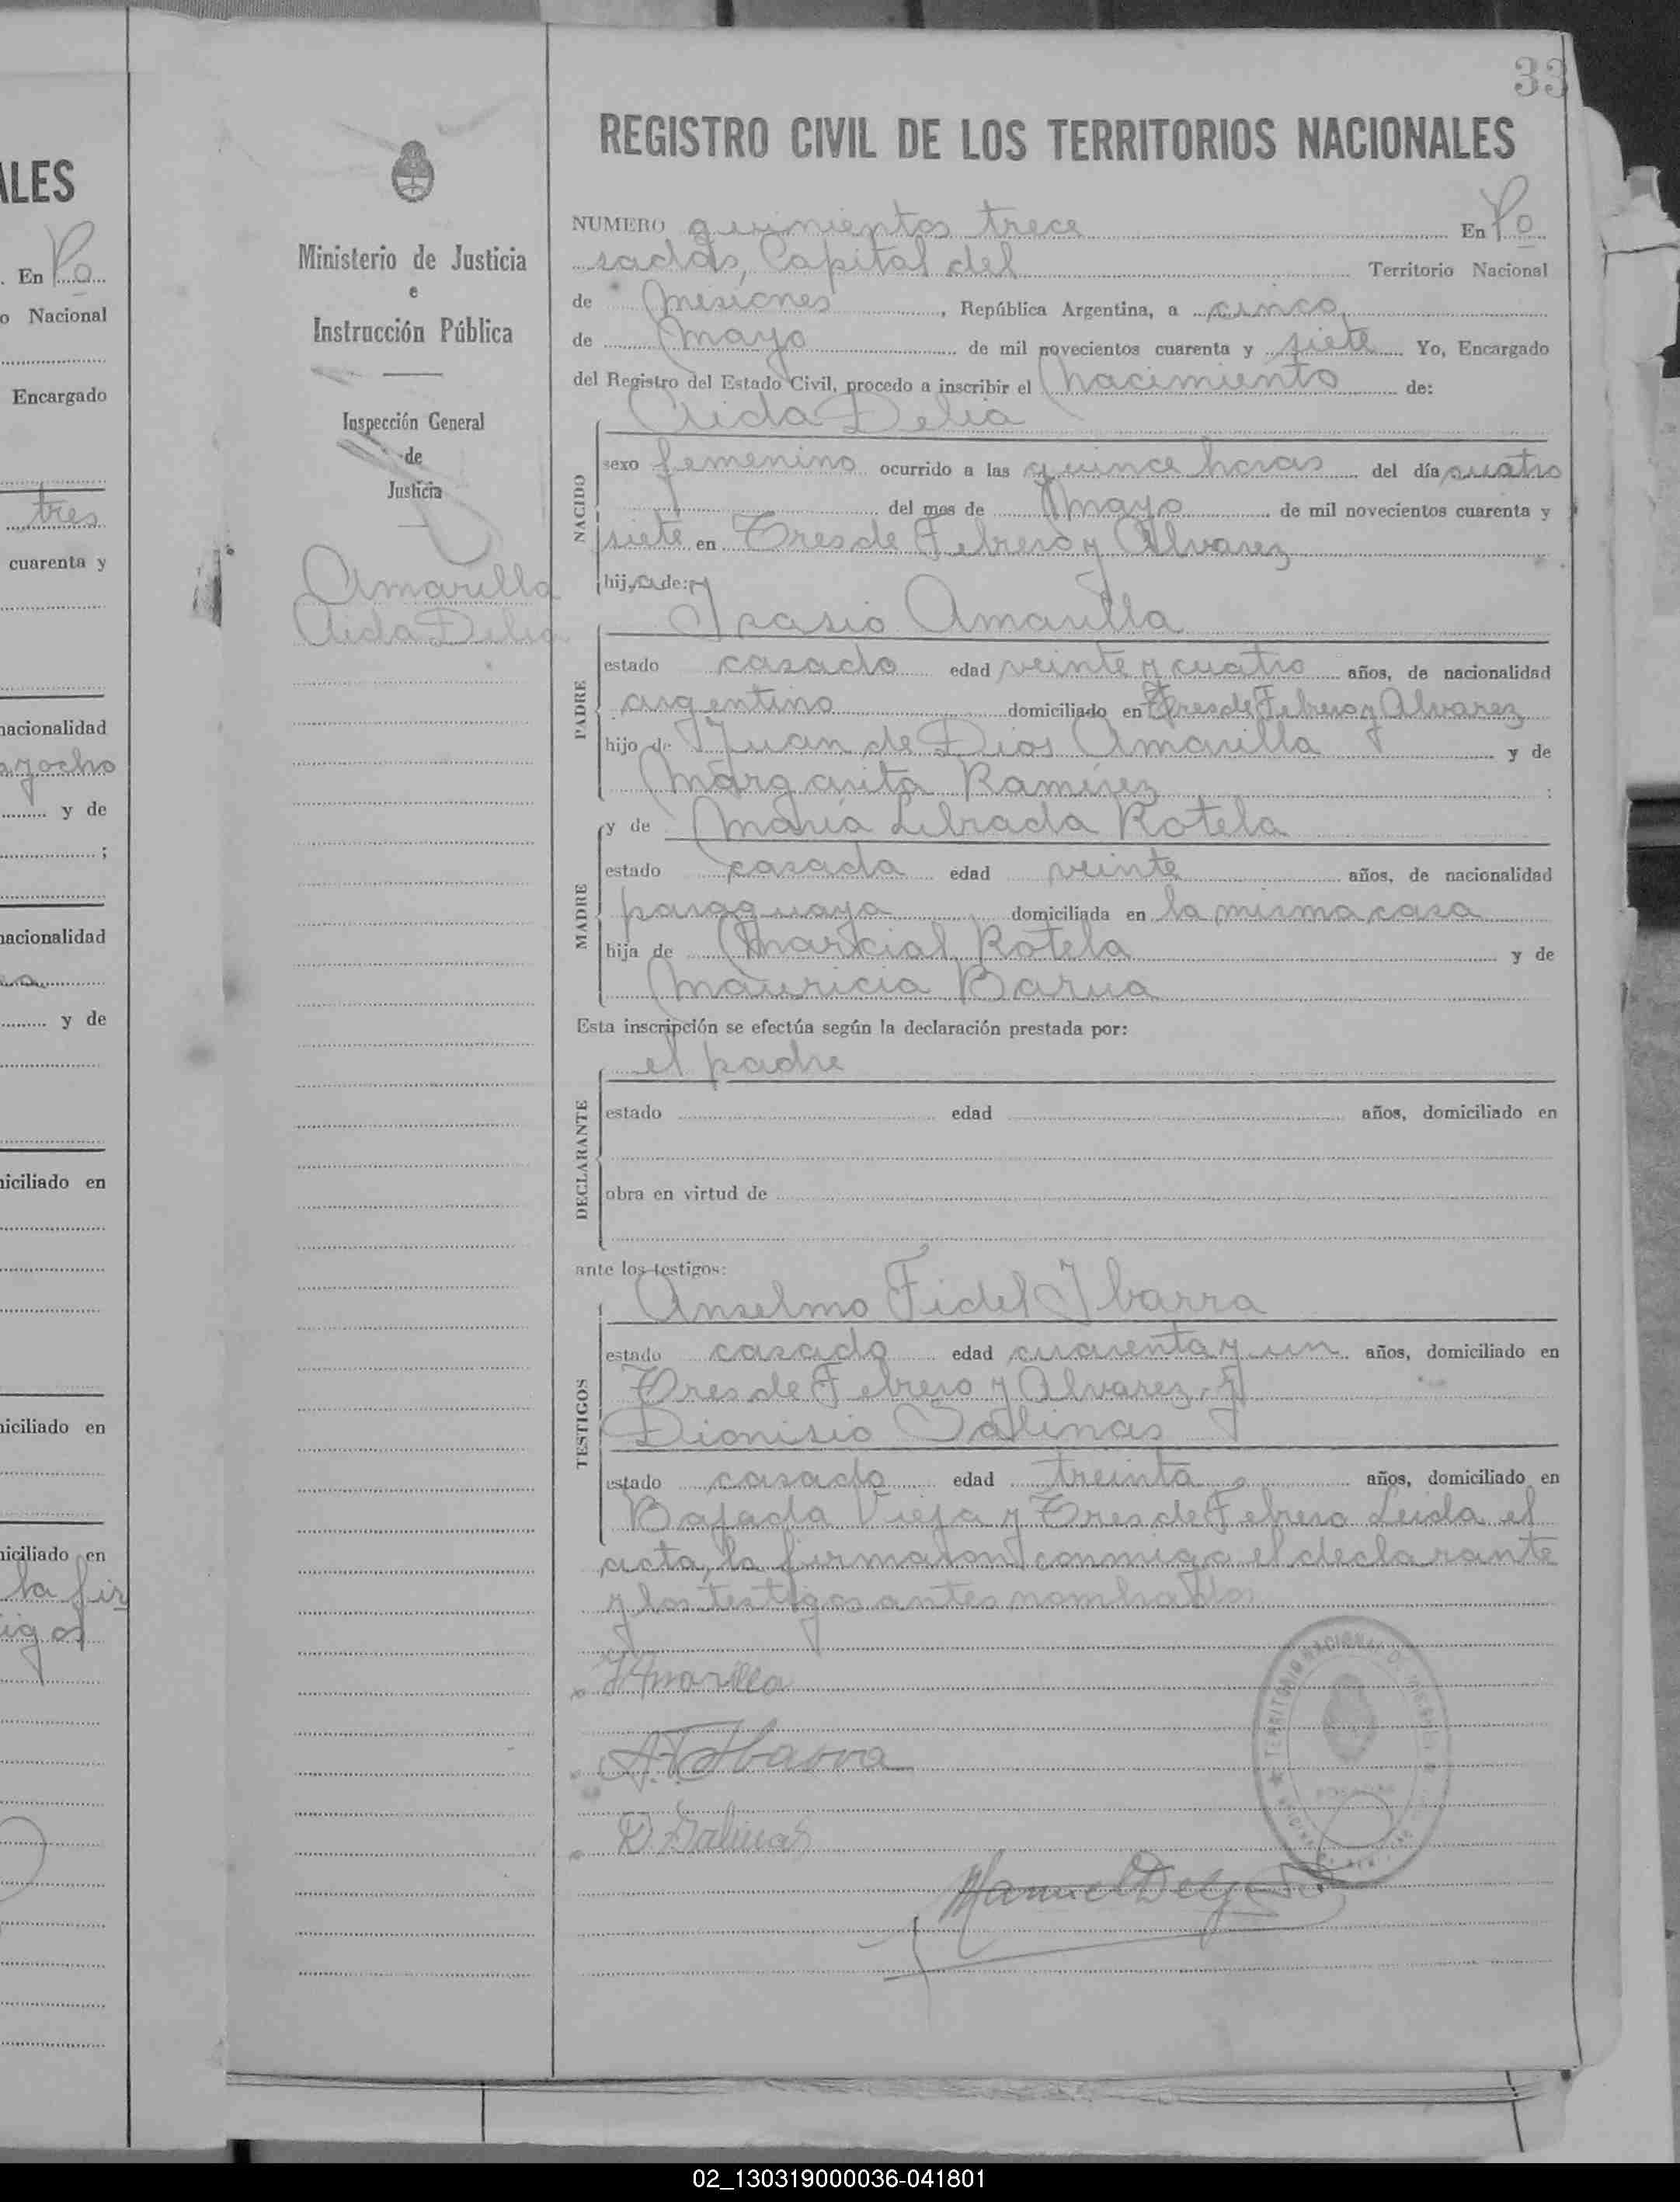 33
ALES
En Po
o Nacional
Encargado
tres
cuarenta y
nacionalidad
ayocho
y de
;
nacionalidad
y de
niciliado en
niciliado en
niciliado en
la fir
igos
Ministerio de Justicia
e
Instrucción Pública
Inspección General
de
Justicia
Amarilla
Aida Delia
REGISTRO CIVIL DE LOS TERRITORIOS NACIONALES
NUMERO quinientos trece En Po
sadas, Capital del Territorio Nacional
de Misiones, República Argentina, a cinco
de Mayo de mil novecientos cuarenta y siete Yo, Encargado
del Registro del Estado Civil, procedo a inscribir el Nacimiento de:
Aida Delia
NACIDO
sexo femenino ocurrido a las quince horas del día cuatro
del mes de Mayo de mil novecientos cuarenta y
siete en Tres de Febrero y Alvarez
hija de:
Amarilla
PADRE
estado casado edad veinte y cuatro años, de nacionalidad
argentino domiciliado en Tres de Febrero y Alvarez
hijo de Juan de Dios Amarilla y de
Margarita Ramírez ;
y de María Librada Rotela
MADRE
estado casada edad veinte años, de nacionalidad
paraguaya domiciliada en la misma casa
hija de Marcial Rotela y de
Mauricia Barua
Esta inscripción se efectúa según la declaración prestada por:
el padre
DECLARANTE
estado edad años, domiciliado en
obra en virtud de
ante los testigos:
Anselmo Fidel Ibarra
TESTIGOS
estado casado edad cuarenta y un años, domiciliado en
Tres de Febrero y Alvarez. y
Dionisio Salinas
estado casado edad treinta años, domiciliado en
Bajada Vieja y Tres de Febrero Leida el
acta, la firmaron conmigo el declarante
y los testigos antes nombrados
Amarilla
A. F. Ibarra
D. Salinas
TERRITORIO NACIONAL DE MISIONES
Manuel
02_130319000036-041801